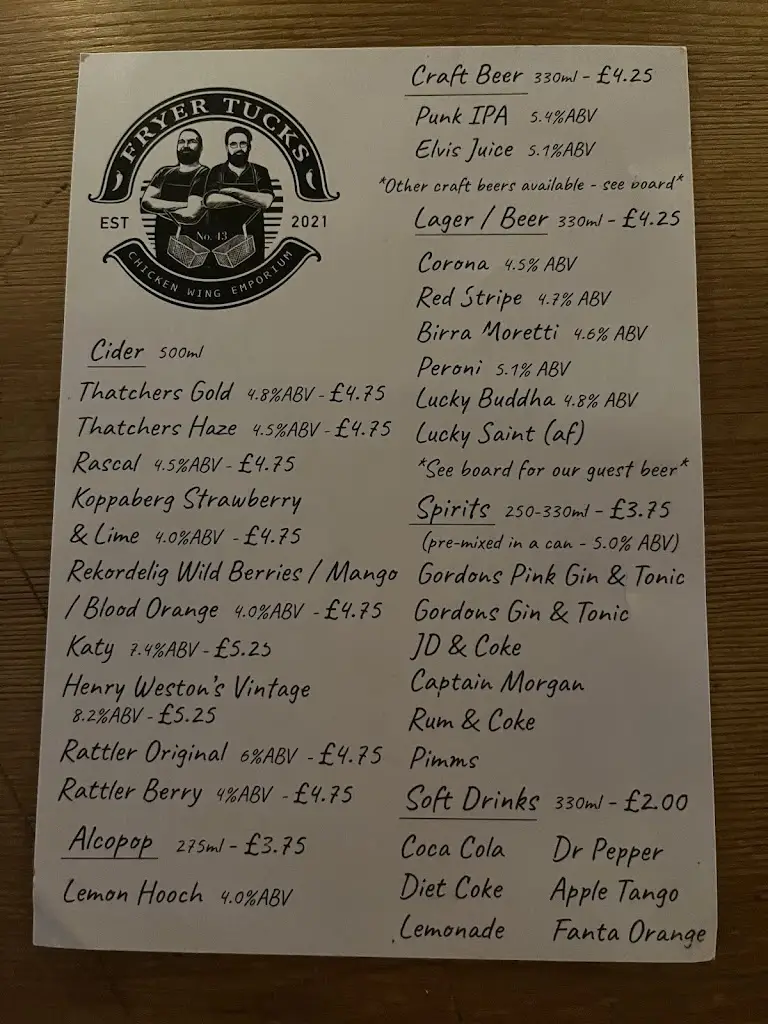 FRYER TUCKS
EST 2021
No. 43
CHICKEN WING EMPORIUM
Cider 500ml
Thatchers Gold 4.8%ABV - £4.75
Thatchers Haze 4.5%ABV - £4.75
Rascal 4.5%ABV - £4.75
Koppaberg Strawberry
& Lime 4.0%ABV - £4.75
Rekordelig Wild Berries / Mango
/ Blood Orange 4.0%ABV - £4.75
Katy 7.4%ABV - £5.25
Henry Weston's Vintage
8.2%ABV - £5.25
Rattler Original 6%ABV - £4.75
Rattler Berry 4%ABV - £4.75
Alcopop 275ml - £3.75
Lemon Hooch 4.0%ABV
Craft Beer 330ml - £4.25
Punk IPA 5.4%ABV
Elvis Juice 5.1%ABV
*Other craft beers available - see board*
Lager / Beer 330ml - £4.25
Corona 4.5% ABV
Red Stripe 4.7% ABV
Birra Moretti 4.6% ABV
Peroni 5.1% ABV
Lucky Buddha 4.8% ABV
Lucky Saint (af)
*See board for our guest beer*
Spirits 250-330ml - £3.75
(pre-mixed in a can - 5.0% ABV)
Gordons Pink Gin & Tonic
Gordons Gin & Tonic
JD & Coke
Captain Morgan
Rum & Coke
Pimms
Soft Drinks 330ml - £2.00
Coca Cola Dr Pepper
Diet Coke Apple Tango
Lemonade Fanta Orange